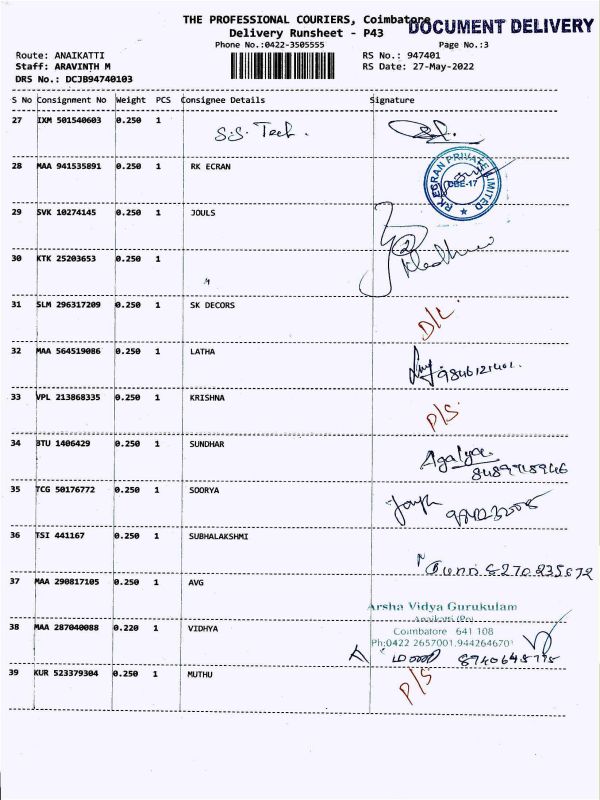 THE PROFESSIONAL COURIERS, Coimbatore
DOCUMENT DELIVERY
Delivery Runsheet - P43
Phone No.:0422-3505555
Page No.:3
Route: ANAIKATTI
RS No.: 947401
Staff: ARAVINTH M
RS Date: 27-May-2022
DRS No.: DCJB94740103
S No Consignment No Weight PCS Consignee Details Signature
27 IXM 501540603 0.250 1 S.S. Tech.
28 MAA 941535891 0.250 1 RK ECRAN
RK ECRAN PRIVATE LIMITED
CBE-17
29 SVK 10274145 0.250 1 JOULS
30 KTK 25203653 0.250 1
31 SLM 296317209 0.250 1 SK DECORS D/L
32 MAA 564519086 0.250 1 LATHA
33 VPL 213868335 0.250 1 KRISHNA P/S
34 BTU 1406429 0.250 1 SUNDHAR Agalya
35 TCG 50176772 0.250 1 SOORYA
36 TSI 441167 0.250 1 SUBHALAKSHMI
37 MAA 290817105 0.250 1 AVG
Arsha Vidya Gurukulam
Anaikatti (Po)
38 MAA 287040088 0.220 1 VIDHYA Coimbatore 641 108
Ph:0422 2657001,944264670
39 KUR 523379304 0.250 1 MUTHU P/S